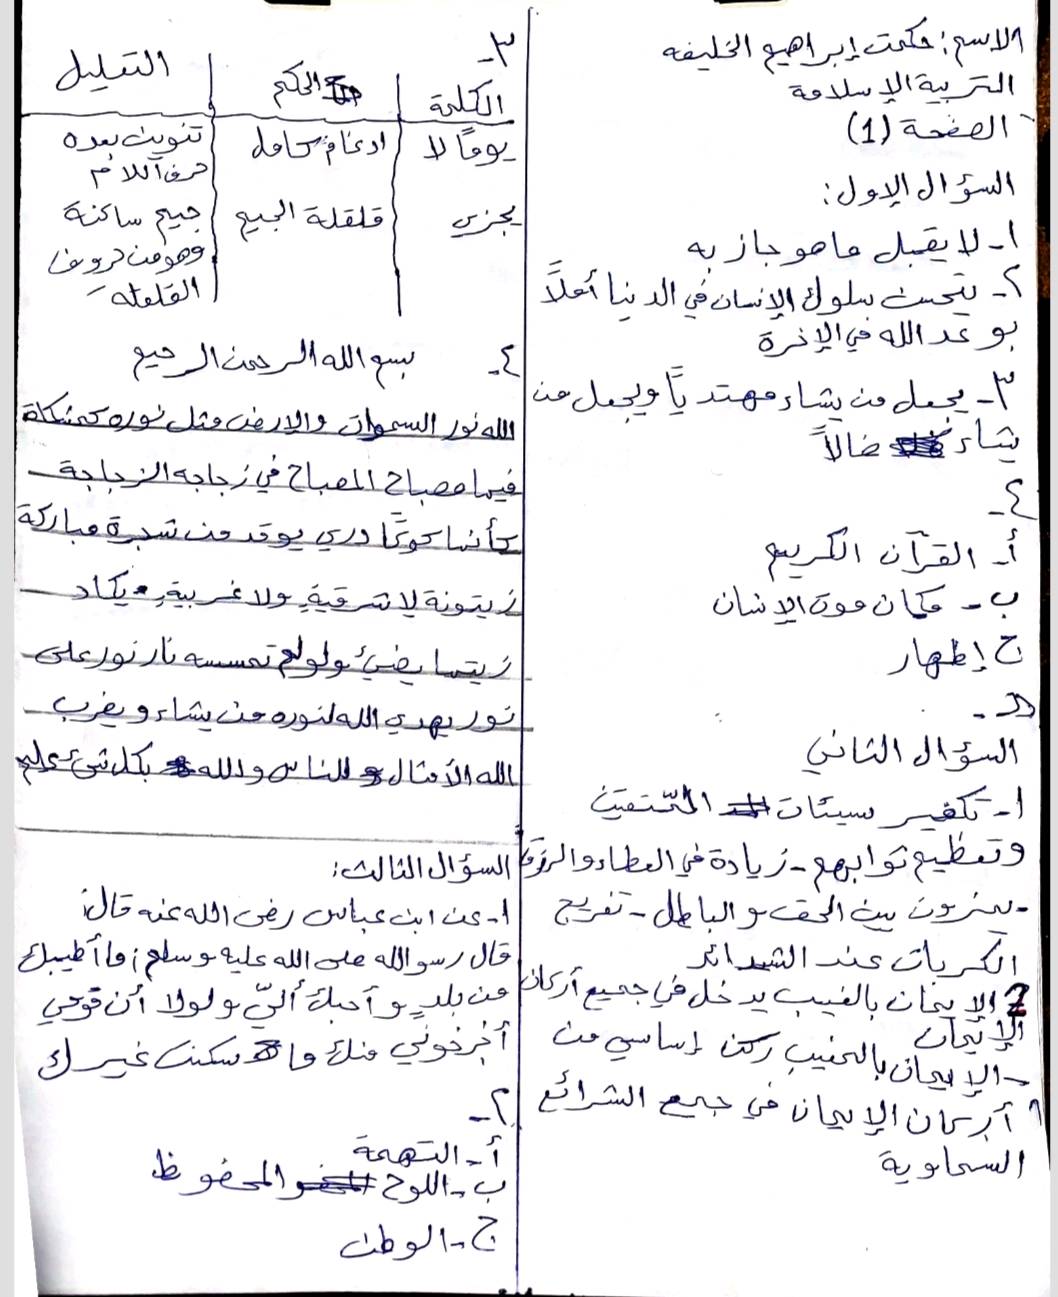 الاسم: حكمت إبراهيم الخليفه
التربية الإسلامة
الصفحة (1)
السؤال الاول:
١- لا يقبل ما هو جاز به
٢- يتحسن سلوك الإنسان في الدنيا أملاً
بوعد الله في الاخرة
٣- يجعل من يشاء مهتدياً ويجعل من
يشاء ضالاً
٤-
أ- القرآن الكريم
ب- مكان موت الإنسان
ج إظهار
٥-
السؤال الثاني
١- تكفير سيئات المتقين
وتعظيم ثوابهم - زيادة في العطاء والرزق
- يميزون بين الحق والباطل - تفريج
الكربات عند الشدائد
2 الإيمان بالغيب يدخل في جميع أركان
الإيمان
- الإيمان بالغيب ركن إساسي من
أركان الإيمان في جميع الشرائع
السماوية
٣-
الكلمة | الحكم | التعليل
يوماً لا | ادغام كامل | تنوين بعده
حرف اللام
يجزي | قلقلة الجيم | جيم ساكنة
وهو من حروف
القلقلة
٤- بسم الله الرحمن الرحيم
الله نور السموات والارض مثل نوره كمشكاة
فيها مصباح المصباح في زجاجه الزجاجة
كأنها كوكبًا دري يوقد من شجرة مباركة
زيتونة لا شرقيةٍ ولا غربيةٍ يكاد
زيتها يضيئ ولو لم تمسسه نار نور على
نور يهدي الله لنوره من يشاء و يضرب
الله الأمثال للناس والله بكل شيء عليم
السؤال الثالث:
١- عن ابن عباس رضى الله عنه قال:
قال رسو الله صلى الله عليه وسلم: ما أطيبك
من بلدٍ و أحبك أليّ ولولا أن قومي
أخرخوني منك ما سكنت غيرك
٢-
أ- التهمة
ب- اللوح المحفوظ
ج- الوطن